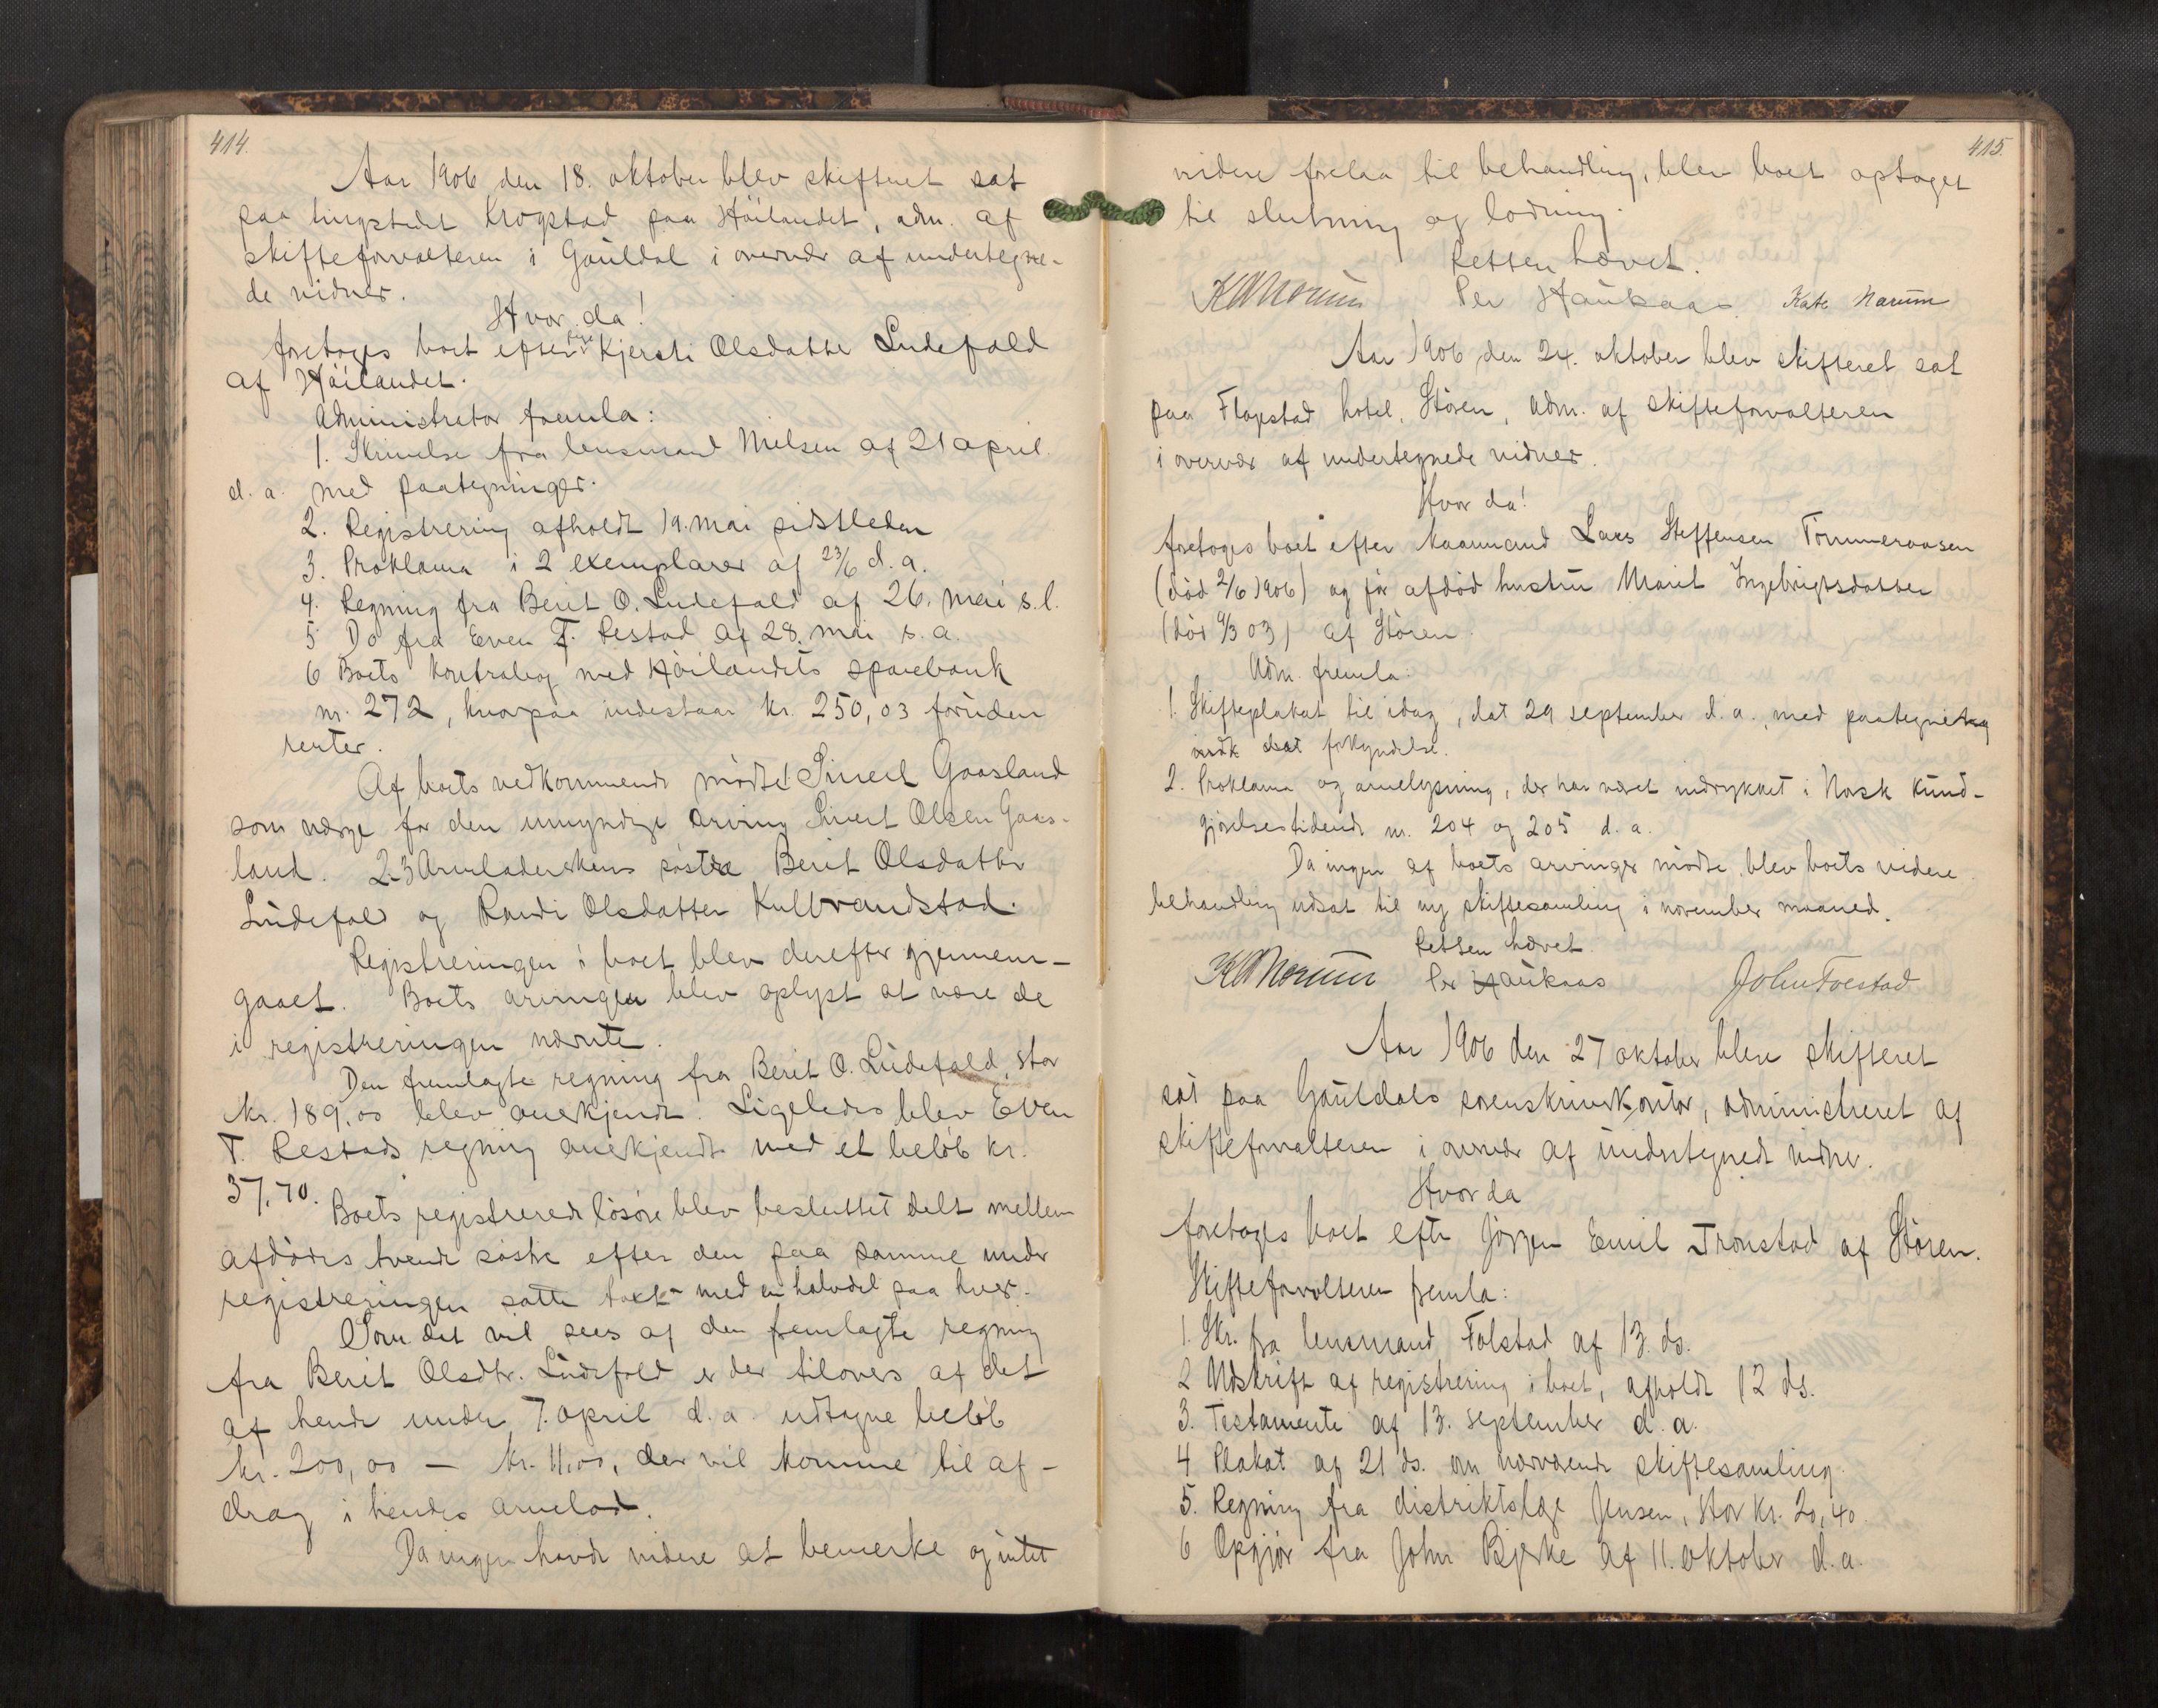 414.
Aar 1906 den 18. oktober blev skifteret sat
paa tingstedet Krogstad paa Höilandet, adm. af
skifteforvalteren i Gauldal i overvær af undertegne-
de vidner.
Hvor da!
foretoges boet efter Kjersti Olsdatter Ludefald
af Höilandet.
Administrator fremla:
1. Skrivelse fra lensmand Nielsen af 21 april
d. a. med paategninger.
2. Registrering afholdt 19. mai sidstleden
3. Proklama i 2 exemplarer af 23/6 d. a.
4. Regning fra Berit O. Ludefald af 26. mai s. l.
5 Do fra Even T. Restad af 28. mai s. a.
6 Boets kontrabog med Höilandets sparebank
nr. 272, hvorpaa indestaar kr. 250,03 foruden
renter.
Af boets vedkommende mödte 1 Sivert Gaasland
som værge for den umyndige arving Sivert Olsen Gaas-
land. 2-3 Arveladerskens söstre Berit Olsdatter
Ludefald og Randi Olsdatter Kulbrandstad.
Registreringen i boet blev derefter gjennem-
gaaet. Boets arvinger blev oplyst at være de
i registreringen nævnte.
Den fremlagte regning fra Berit O. Ludefald, stor
kr. 189,00 blev anerkjendt. Ligeledes blev Even
T. Restads regning anerkjendt med et belöb kr.
37,70.
Boets registrerede lösöre blev besluttet delt mellem
afdödes tvende söstre efter den paa samme under
registreringen satte takst med en halvdel paa hver.
Som det vil sees af den fremlagte regning
fra Berit Olsdtr. Ludefald er der tilovers af det
af hende under 7. april d. a. udtagne belöb
kr. 200,00 — kr. 11,00, der vil komme til af-
drag i hendes arvelod.
Da ingen havde videre at bemerke og intet
415.
videre forelaa til behandling, blev boet optaget
til slutning og lodning.
Retten hævet.
K Norum Per Haukaas Kate Narum
Aar 1906 den 24. oktober blev skifteret sat
paa Flagstad hotel, Stören, adm. af skifteforvalteren
i overvær af undertegnede vidner.
Hvor da!
foretoges boet efter kaarmand Lars Steffensen Tömmeraasen
(död 2/6 1906) og för afdöd hustru Marit Ingebrigtsdatter
(död /3 03) af Stören.
Adm. fremla:
1. Skifteplakat til idag, dat 29 september d. a. med paategning
forkyndelse.
2. Proklama og arvelysning, der har været indrykket i Norsk Kund-
gjörelsestidende nr. 204 og 205 d. a.
Da ingen af boets arvinger mödte, blev boets videre
behandling udsat til ny skiftesamling i november maaned.
Retten hævet.
K Norum Per Haukaas John Foestad
Aar 1906 den 27 oktober blev skifteret
sat paa Gauldals sorenskriverkontor, administreret af
skifteforvalteren i overvær af undertegnede vidner.
Hvor da
foretoges boet efter Jörgen Emil Tronstad af Stören.
Skifteforvalteren fremla:
1. Skr. fra lensmand Folstad af 13. ds.
2 Udskrift af registrering i boet, afholdt 12 ds.
3. Testamente af 13. september d. a.
4 Plakat af 21 ds. om nærværende skiftesamling.
5. Regning fra distriktslæge Jensen, stor kr. 20,40.
6 Opgjör fra John Bjerke af 11. oktober d. a.